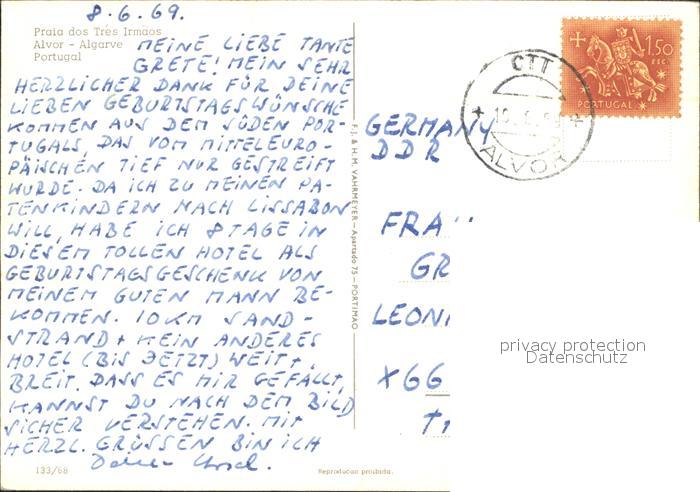 8.6.69.
Praia dos Três Irmãos
Alvor - Algarve
Portugal
MEINE LIEBE TANTE
GRETE! MEIN SEHR
HERZLICHER DANK FÜR DEINE
LIEBEN GEBURTSTAGSWÜNSCHE
KOMMEN AUS DEM SÜDEN POR-
TUGALS, DAS VOM MITTELEURO-
PÄISCHEN TIEF NUR GESTREIFT
WURDE. DA ICH ZU MEINEN PA-
TENKINDERN NACH LISSABON
WILL, HABE ICH 8 TAGE IN
DIESEM TOLLEN HOTEL ALS
GEBURTSTAGSGESCHENK VON
MEINEM GUTEN MANN BE-
KOMMEN. 10 KM SAND-
STRAND + KEIN ANDERES
HOTEL (BIS JETZT) WEIT +
BREIT. DASS ES MIR GEFÄLLT,
KANNST DU NACH DEM BILD
SICHER VERSTEHEN. MIT
HERZL. GRÜSSEN BIN ICH
133/68
Reproducao proibida.
F.J. & H.M. VAHRMEYER - Apartado 75 - PORTIMÃO
1$50
ESC.
PORTUGAL
CTT
ALVOR
GERMANY
DDR
FRA
GR
LEONI
X66
privacy protection
Datenschutz